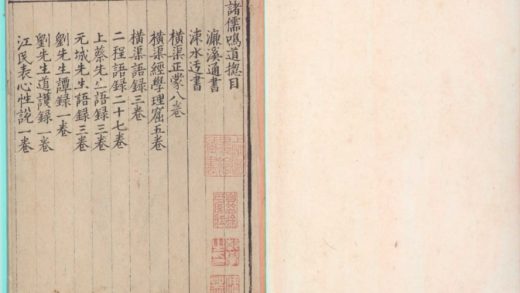 諸儒鳴道總目
濂溪通書
涑水迂書
橫渠正蒙八卷
橫渠經學理窟五卷
橫渠語錄三卷
二程語錄二十七卷
上蔡先生語錄三卷
元城先生語錄三卷
劉先生譚錄一卷
劉先生道護錄一卷
江民表心性說一卷